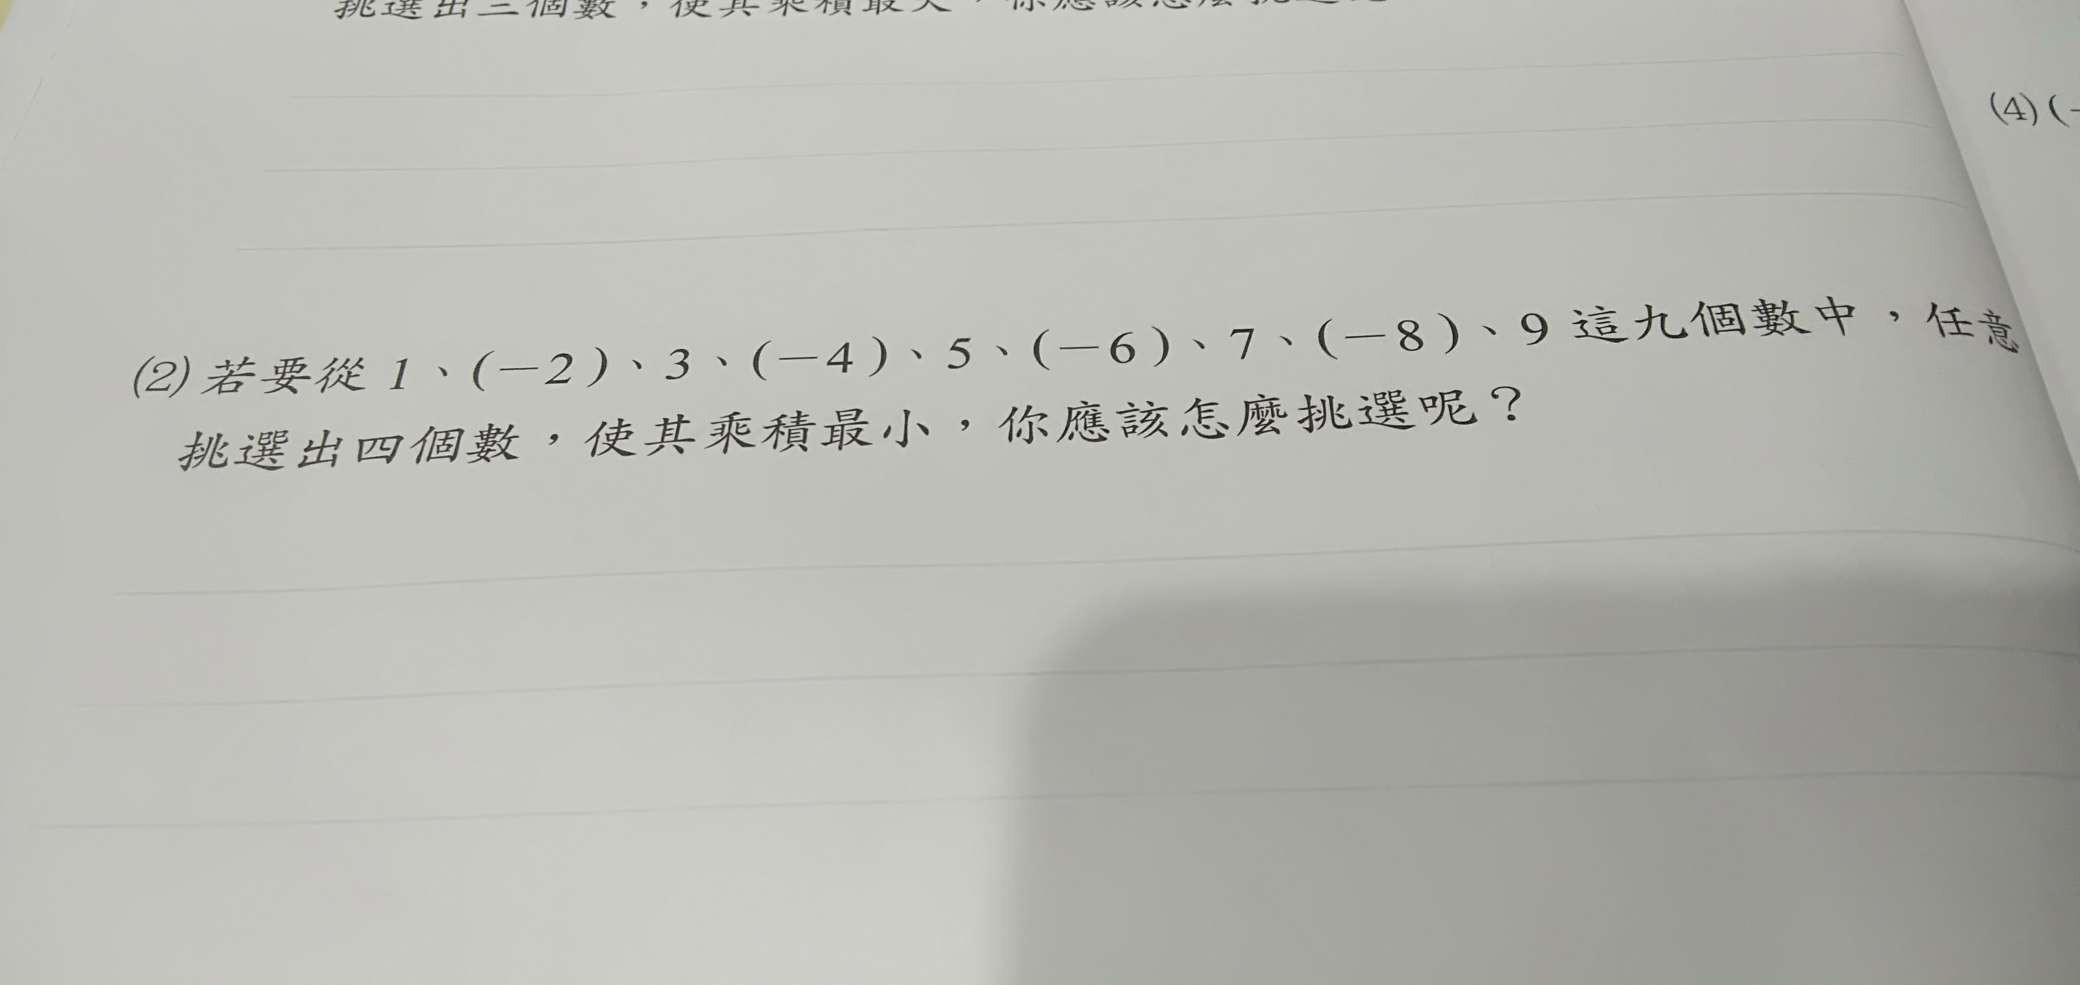 挑選出三個數，使其乘積最大，你應該怎麼挑選呢
(4)(-
(2)若要從 1、(－2)、3、(－4)、5、(－6)、7、(－8)、9 這九個數中，任意
挑選出四個數，使其乘積最小，你應該怎麼挑選呢？